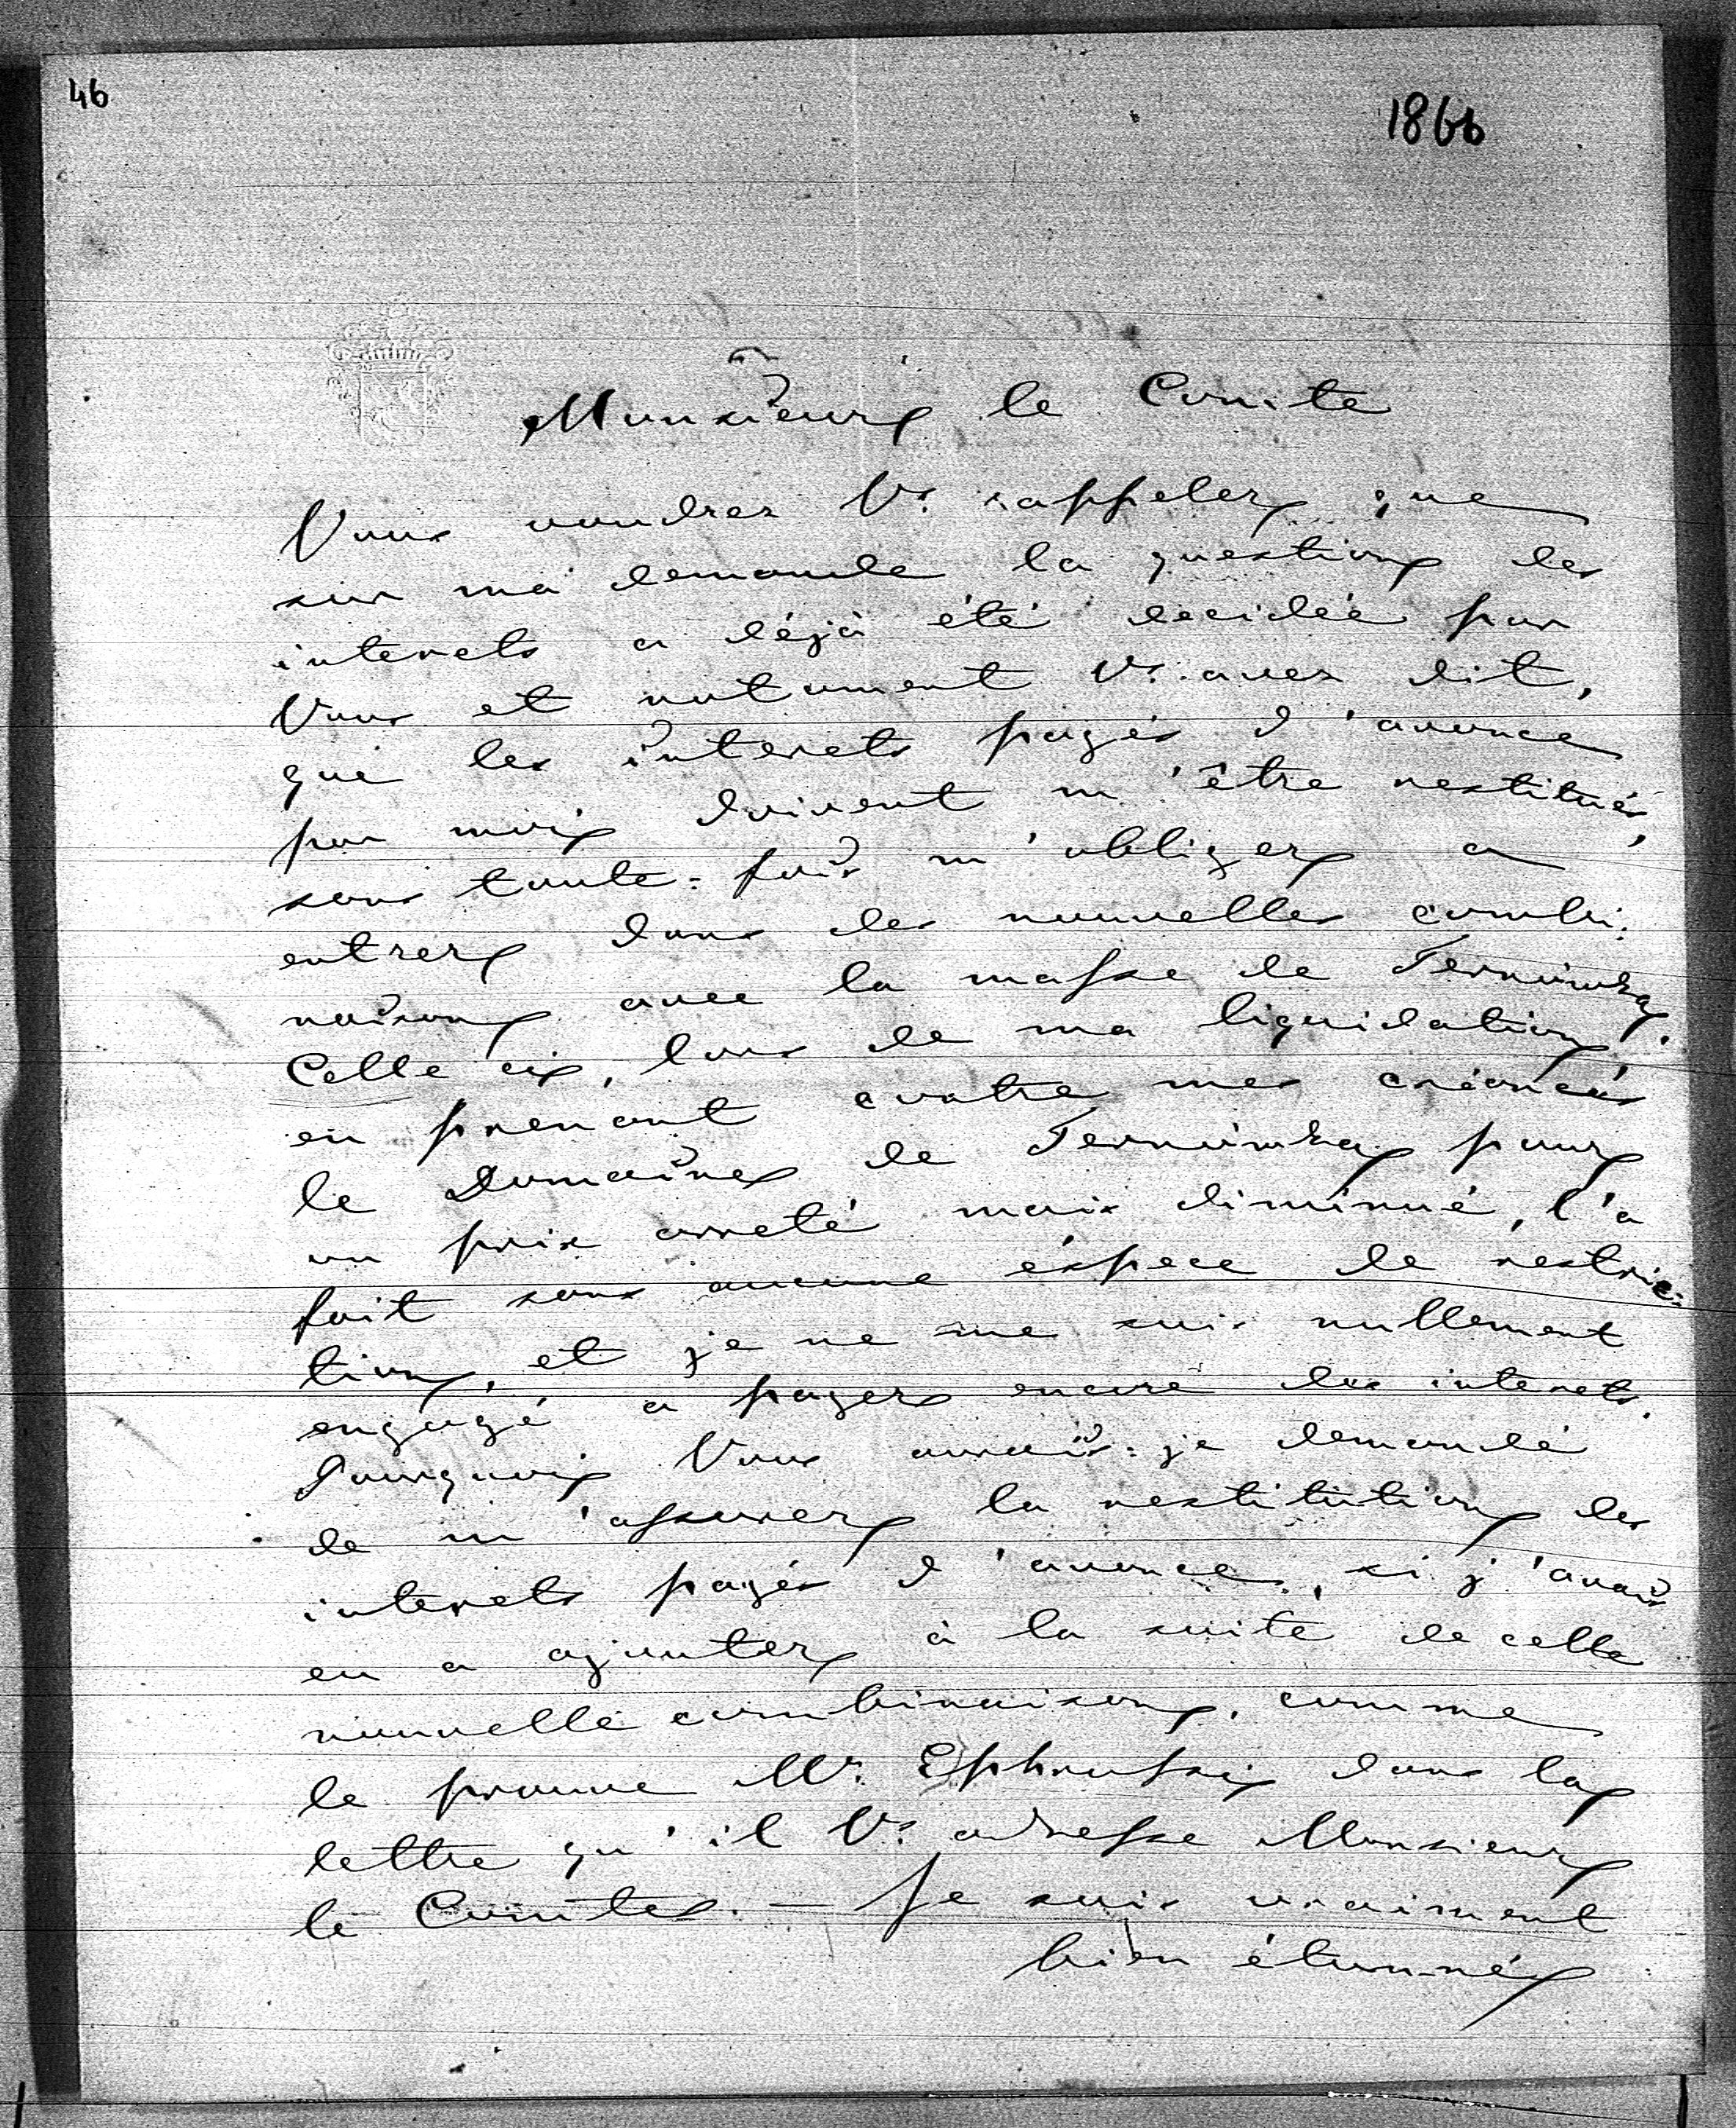 46
1866
Monsieur le Comte
Vous voudrez Vs. rappeler que
sur ma demande la question des
interets a déjà été decidée par
Vous et notament Vs. avez dit,
que les interets payés d'avance
par moi doivent m'être restitués,
sans toute-fois m'obliger a
entrer dans des nouvelles combi-
naison avec la masse de
Celle ci, lors de ma liquidation,
en prenant contre mes créances
le Domaine de pour
un prix arreté mais diminué, l'a
fait sans aucune éspece de restric-
tion, et je ne me suis nullement
engagé a payer encore des interets.
Pourquoi Vous aurais-je demandé
de m'assurer la restitution des
interets payés d'avance, si j'avais
en a ajouter à la suite de cette
nouvelle combinaison, comme
le prouve Mr. Ephrussi dans la
lettre qu'il Vs. adresse Monsieur
le Comte. — Je suis vraiment
bien étonné